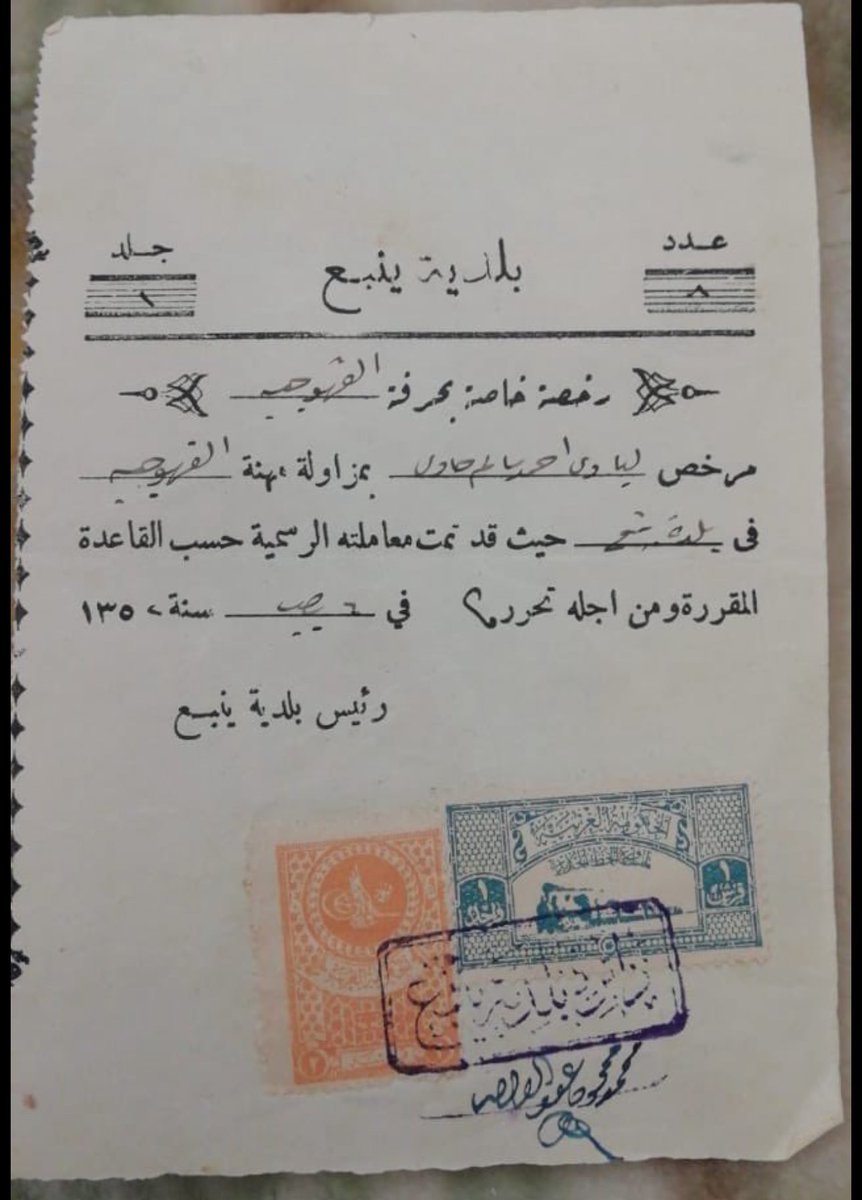 عدد
٨
بلدية ينبع
جلد
١
رخصة خاصة بحرفة القهوجيه
مرخص احمد بمزاولة مهنة القهوجيه
فى بلدة ينبع حيث قد تمت معاملته الرسمية حسب القاعدة
المقررة ومن اجله تحرر في ٦ رجب سنة ١٣٥٠
رئيس بلدية ينبع
الحكومة العربية
١ قرش
١ واحد
٢
رئاسة بلدية ينبع
محمد